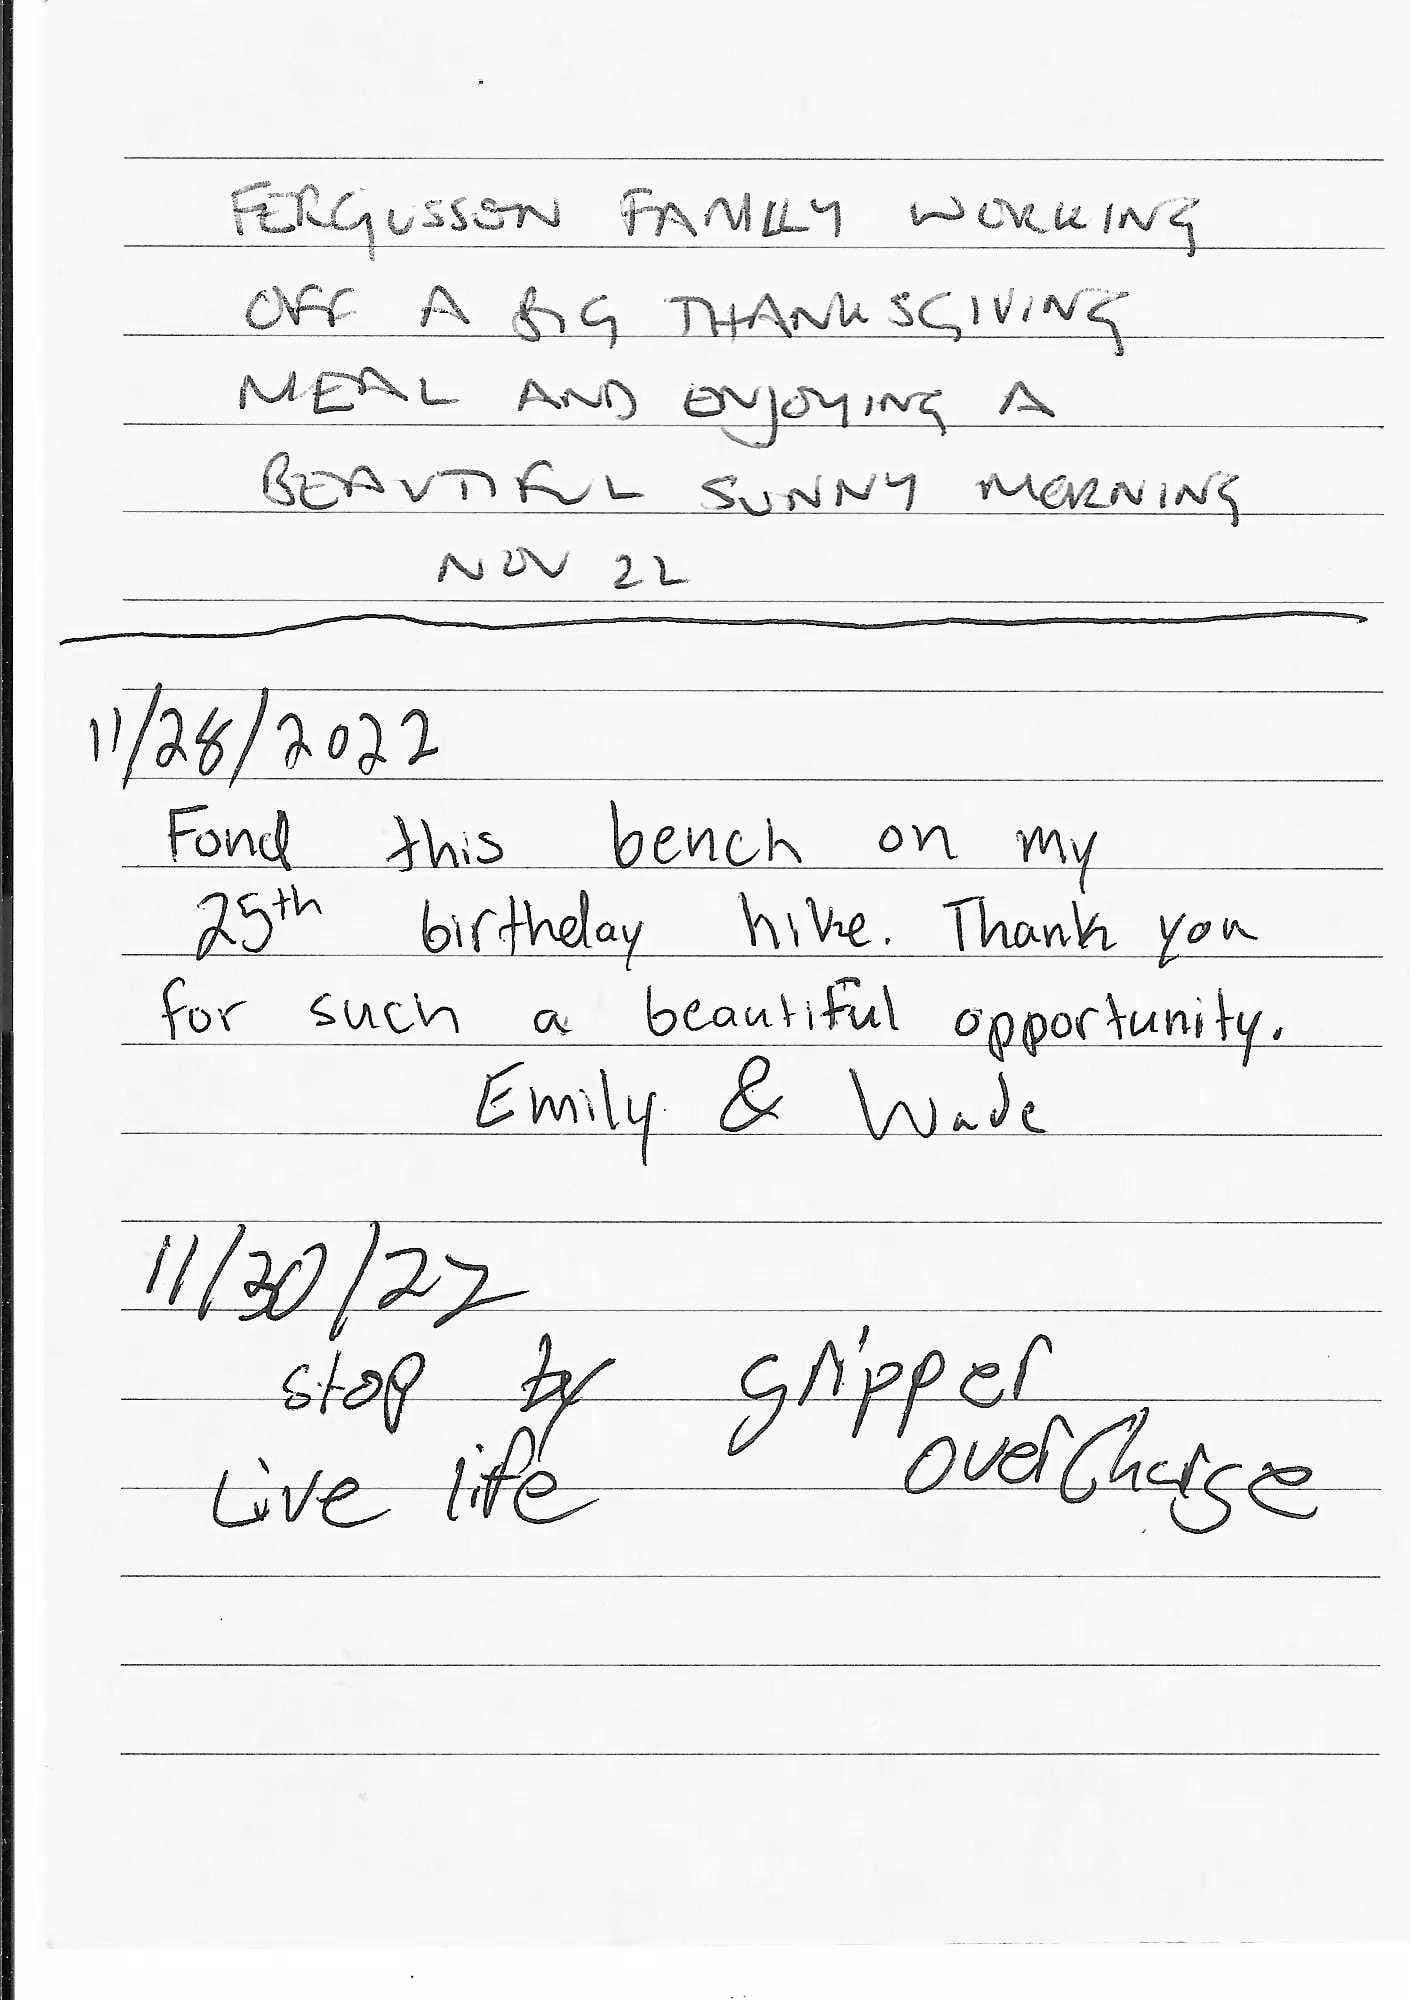 FERGUSSON FAMILY WORKING
OFF A BIG THANKSGIVING
MEAL AND ENJOYING A
BEAUTIFUL SUNNY MORNING
NOV 22
11/28/2022
Fond this bench on my
25th birthday hike. Thank you
for such a beautiful opportunity.
Emily & Wade
11/30/22
stop by gripper
Live life overCharge